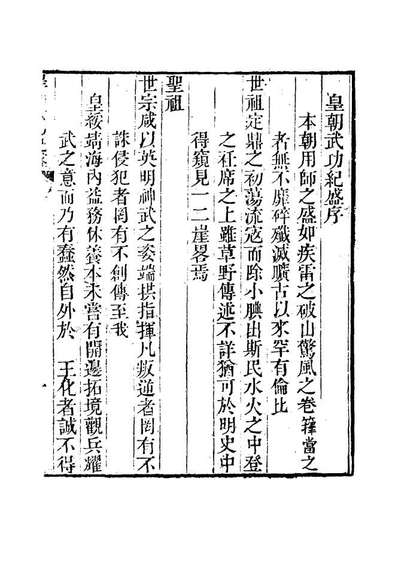 皇朝武功紀盛序
本朝用師之盛如疾雷之破山驚風之卷籜當之
者無不靡碎殲滅曠古以來罕有倫比
世祖定鼎之初蕩流寇而除小腆出斯民水火之中登
之袵席之上雖草野傳述不詳猶可於明史中
得窺見一二崖畧焉
聖祖
世宗咸以英明神武之姿端拱指揮凡叛逆者罔有不
誅侵犯者罔有不創傳至我
皇綏靖海內益務休養本未嘗有開邊拓境觀兵耀
武之意而乃有蠢然自外於 王化者誠不得
一